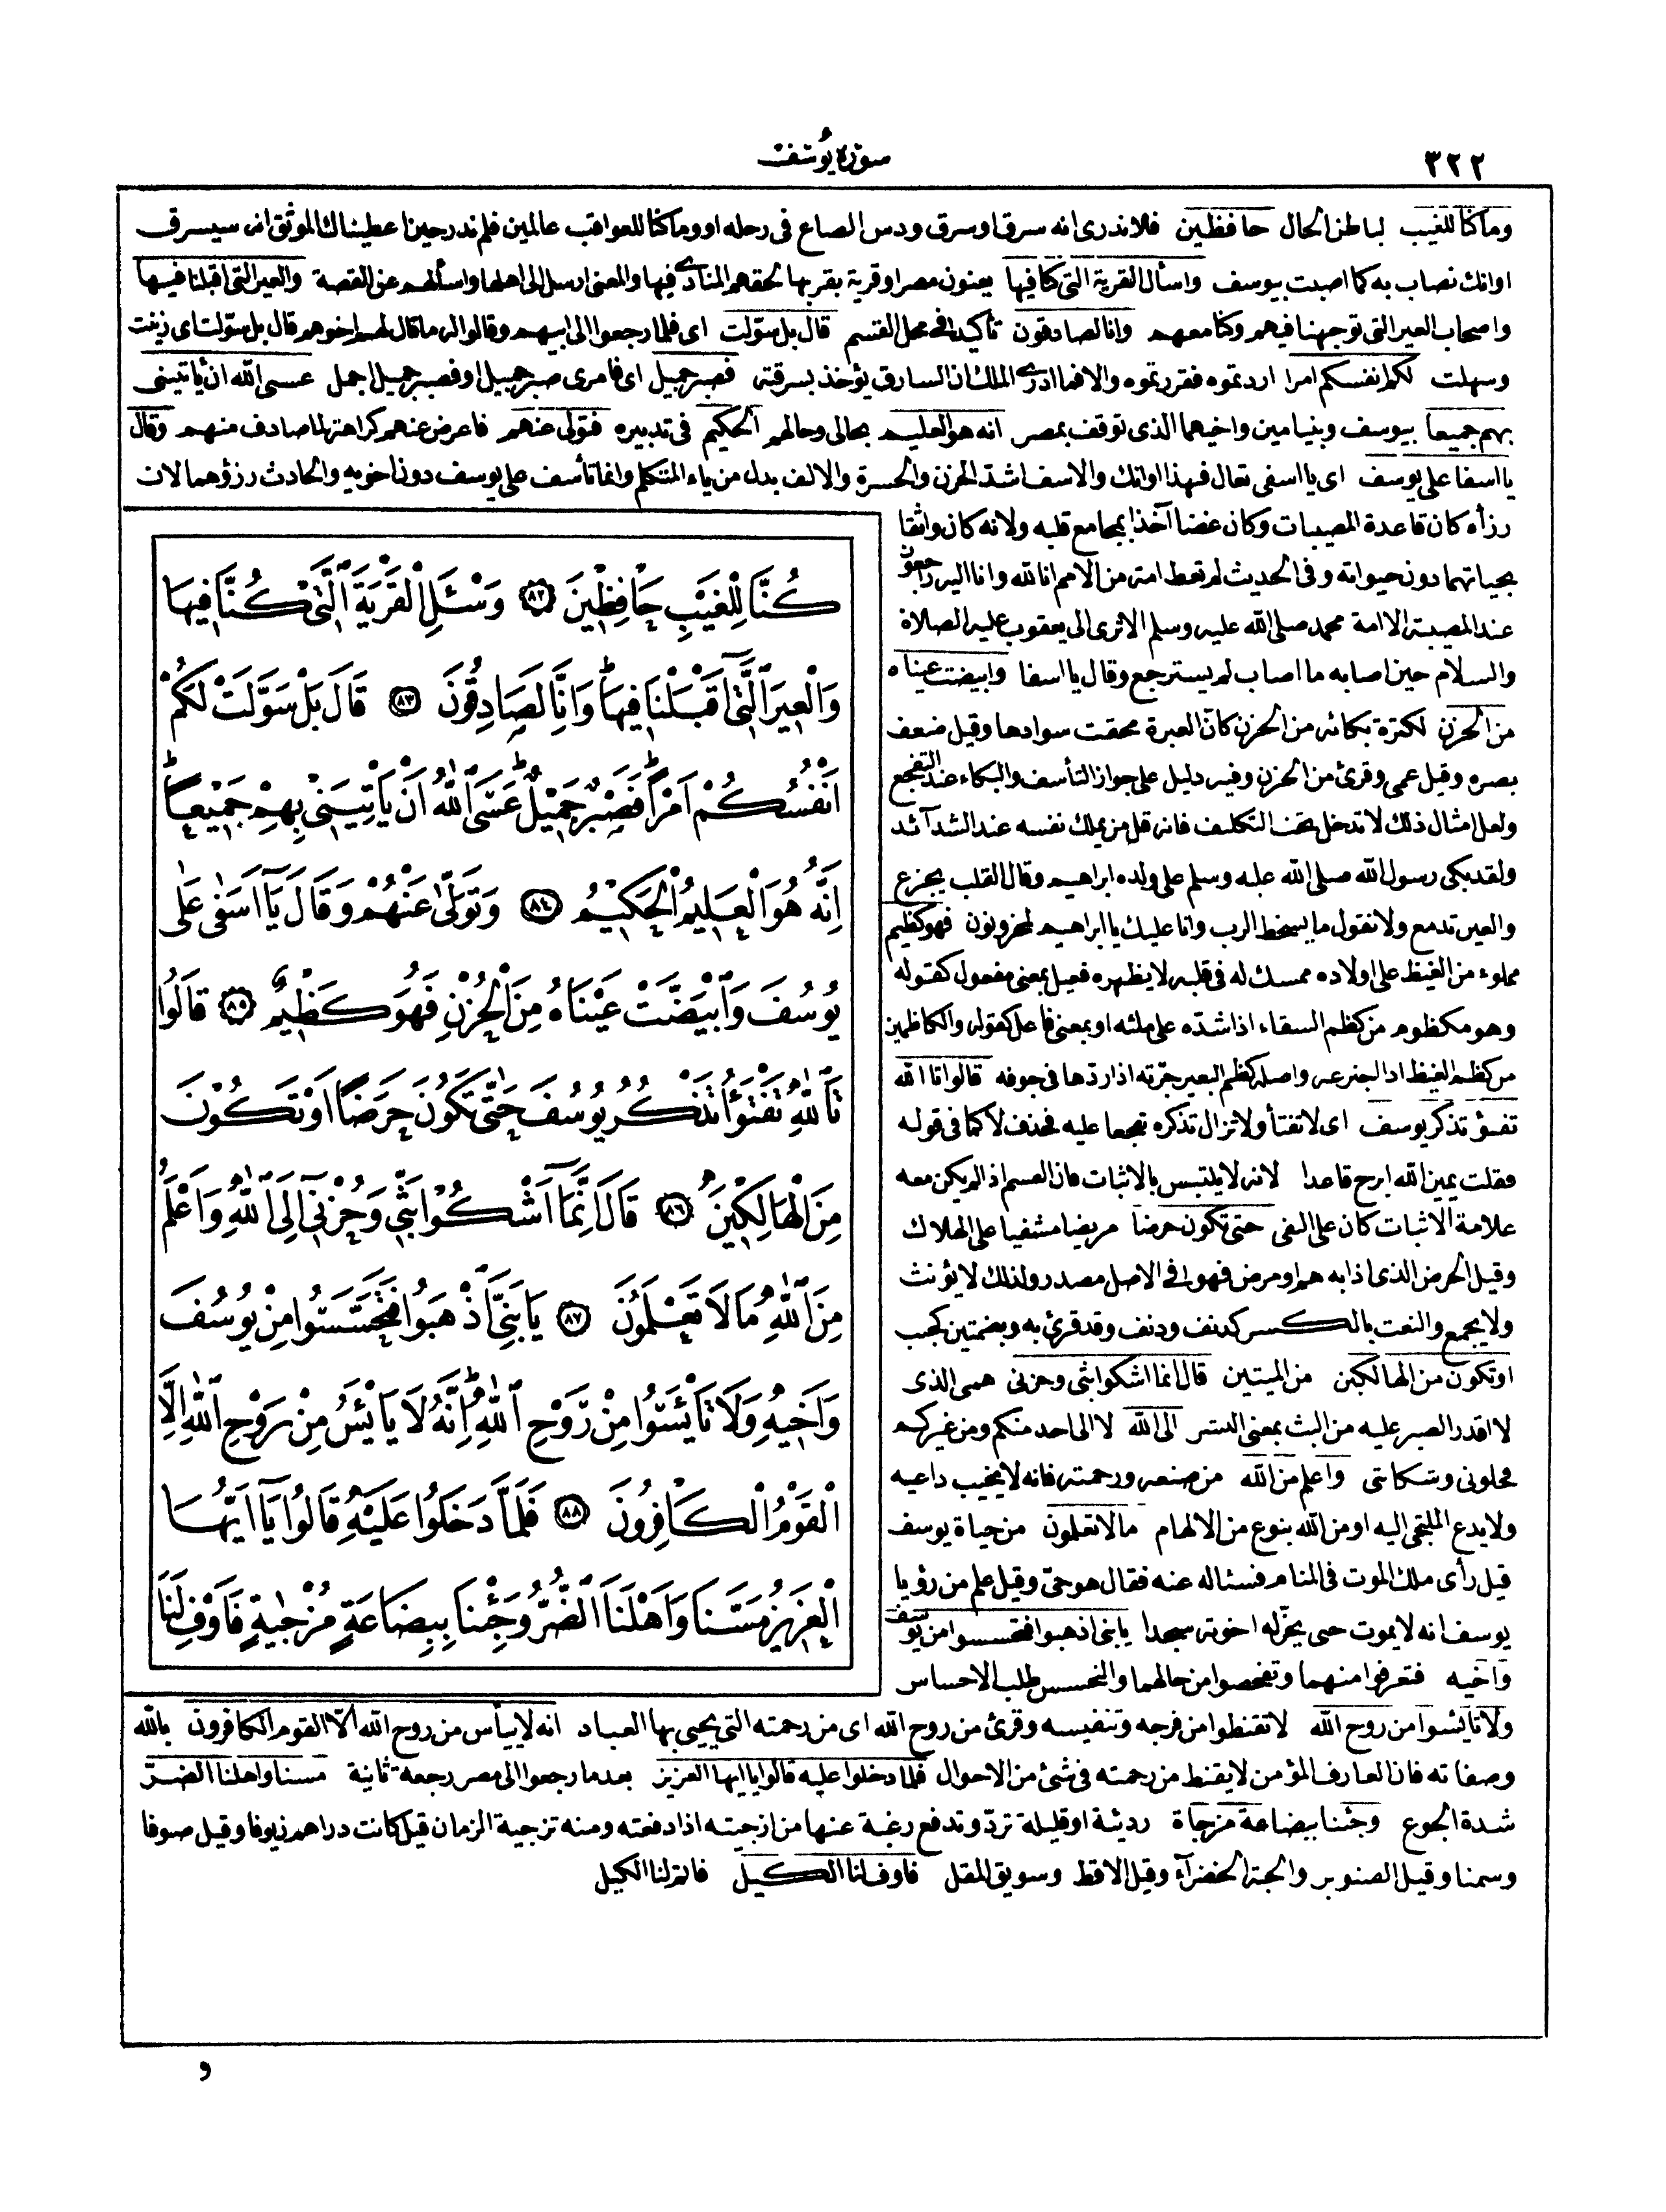 ٣٢٢
سورة يوسف
وماكنا للغيب لباطن الحال حافظين فلاندرى انه سرق او سرق ودس الصاع فى رحله او وماكنا للعواقب عالمين فلم ندر حين اعطيناك الموثق انه سيسرق
اوانك نصاب به كما اصبت بيوسف واسأل القرية التى كنا فيها يعنون مصر او قرية بقربها لحقهم المنادى فيها والمعنى ارسل الى اهلها واسألهم عن القصة والعير التى اقبلنا فيها
واصحاب العير التى توجهنا فيهم وكنا معهم وانا لصادقون تأكيد فى محل القسم قال بل سوّلت اى فلما رجعوا الى ابيهم وقالوا له ما قال لهم اخوهم قال بل سوّلت اى زينت
وسهلت لكم انفسكم امرا اردتموه فقررتموه والا فما ادرى الملك ان السارق يؤخذ بسرقته فصبر جميل اى فامرى صبر جميل او فصبر جميل اجمل عسى الله ان يأتينى
بهم جميعا بيوسف وبنيامين واخيهما الذى توقف بمصر انه هو العليم بحالى وحالهم الحكيم فى تدبيره فتولى عنهم فاعرض عنهم كراهة لما صادف منهم وقال
يا اسفا على يوسف اى يا اسفى تعال فهذا اوانك والاسف اشد الحزن والحسرة والالف بدل من ياء المتكلم وانما تأسف على يوسف دون اخويه والحادث رزؤهما لان
رزأه كان قاعدة المصيبات وكان غضا آخذا بمجامع قلبه ولانه كان واثقا
بحياتهما دون حيواته وفى الحديث لم تعط امة من الامم انا لله وانا اليه راجعون
عند المصيبة الا امة محمد صلى الله عليه وسلم الا ترى الى يعقوب عليه الصلاة
والسلام حين اصابه ما اصاب لم يسترجع وقال يا اسفا وابيضت عيناه
من الحزن لكثرة بكائه من الحزن كأنّ العبرة محقت سوادها وقيل ضعف
بصره وقيل عمى وقرئ من الحزن وفيه دليل على جواز التأسف والبكاء عند التفجع
ولعل امثال ذلك لا تدخل تحت التكليف فانه قل من يملك نفسه عند الشدآئد
ولقد بكى رسول الله صلى الله عليه وسلم على ولده ابراهيم وقال القلب يجزع
والعين تدمع ولا نقول ما يسخط الرب وانا عليك يا ابراهيم لمحزونون فهو كظيم
مملوء من الغيظ على اولاده ممسك له فى قلبه لا يظهره فعيل بمعنى مفعول كقوله
وهو مكظوم من كظم السقاء اذا شدّه على ملئه او بمعنى فاعل كقوله والكاظمين
من كظم الغيظ اذا اجترعه واصله كظم البعير جرّته اذا ردّها فى جوفه قالوا تا الله
تفتؤ تذكر يوسف اى لا تفتأ ولا تزال تذكره تفجعا عليه فحذف لا كما فى قوله
فقلت يمين الله ابرح قاعدا لانه لا يلتبس بالاثبات فان القسم اذا لم يكن معه
علامة الاثبات كان على النفى حتى تكون حرضا مريضا مشفيا على الهلاك
وقيل الحرض الذى اذابه هم او مرض فهو فى الاصل مصدر ولذلك لا يؤنث
ولا يجمع والنعت بالكسر كدنف ودنف وقد قرئ به وبضمتين كجب
او تكون من الهالكين من الميتين قال انما اشكو بثى وحزنى همى الذى
لا اقدر الصبر عليه من البث بمعنى النشر الى الله لا الى احد منكم ومن غيركم
فخلونى وشكايتى واعلم من الله من صنعه ورحمته فانه لا يخيب داعيه
ولا يدع الملتجئ اليه او من الله بنوع من الالهام ما لا تعلمون من حياة يوسف
قيل رأى ملك الموت فى المنام فسئاله عنه فقال هو حىّ وقيل علم من رؤيا
يوسف انه لا يموت حتى يخرّ له اخوته سجدا يا بنى اذهبوا فتحسسوا من يوسف
واخيه فتعرفوا منهما وتفحصوا من حالهما والتحسس طلب الاحساس
كُنَّا لِلْغَيْبِ حَافِظِينَ ﴿٨٢﴾ وَسْـَٔلِ الْقَرْيَةَ الَّتِى كُنَّا فِيهَا
وَالْعِيرَ الَّتِى اَقْبَلْنَا فِيهَا وَاِنَّا لَصَادِقُونَ ﴿٨٣﴾ قَالَ بَلْ سَوَّلَتْ لَكُمْ
اَنْفُسُكُمْ اَمْرًا فَصَبْرٌ جَمِيلٌ عَسَى اللهُ اَنْ يَأْتِيَنِى بِهِمْ جَمِيعًا
اِنَّهُ هُوَ الْعَلِيمُ الْحَكِيمُ ﴿٨٤﴾ وَتَوَلّٰى عَنْهُمْ وَقَالَ يَآ اَسَفٰى عَلٰى
يُوسُفَ وَابْيَضَّتْ عَيْنَاهُ مِنَ الْحُزْنِ فَهُوَ كَظِيمٌ ﴿٨٥﴾ قَالُوا
تَاللهِ تَفْتَؤُا تَذْكُرُ يُوسُفَ حَتّٰى تَكُونَ حَرَضًا اَوْ تَكُونَ
مِنَ الْهَالِكِينَ ﴿٨٦﴾ قَالَ اِنَّمَآ اَشْكُوا بَثِّى وَحُزْنِىٓ اِلَى اللهِ وَاَعْلَمُ
مِنَ اللهِ مَا لَا تَعْلَمُونَ ﴿٨٧﴾ يَا بَنِىَّ اذْهَبُوا فَتَحَسَّسُوا مِنْ يُوسُفَ
وَاَخِيهِ وَلَا تَايْـَٔسُوا مِنْ رَوْحِ اللهِ اِنَّهُ لَا يَايْـَٔسُ مِنْ رَوْحِ اللهِ اِلَّا
الْقَوْمُ الْكَافِرُونَ ﴿٨٨﴾ فَلَمَّا دَخَلُوا عَلَيْهِ قَالُوا يَآ اَيُّهَا
الْعَزِيزُ مَسَّنَا وَاَهْلَنَا الضُّرُّ وَجِئْنَا بِبِضَاعَةٍ مُزْجٰيةٍ فَاَوْفِ لَنَا
ولا تايئسوا من روح الله لا تقنطوا من فرجه وتنفيسه وقرئ من روح الله اى من رحمته التى يحيى بها العباد انه لا ييأس من روح الله الّا القوم الكافرون بالله
وصفاته فان العارف المؤمن لا يقنط من رحمته فى شئ من الاحوال فلما دخلوا عليه قالوا يا ايها العزيز بعد ما رجعوا الى مصر رجعة ثانية مسنا واهلنا الضرّ
شدة الجوع وجئنا ببضاعة مزجاة رديئة او قليلة تردّ وتدفع رغبة عنها من ازجيته اذا دفعته ومنه تزجية الزمان قيل كانت دراهم زيوفا وقيل صوفا
وسمنا وقيل الصنوبر والحبة الخضرآء وقيل الاقط وسويق المقل فاوف لنا الكيل فاتم لنا الكيل
و